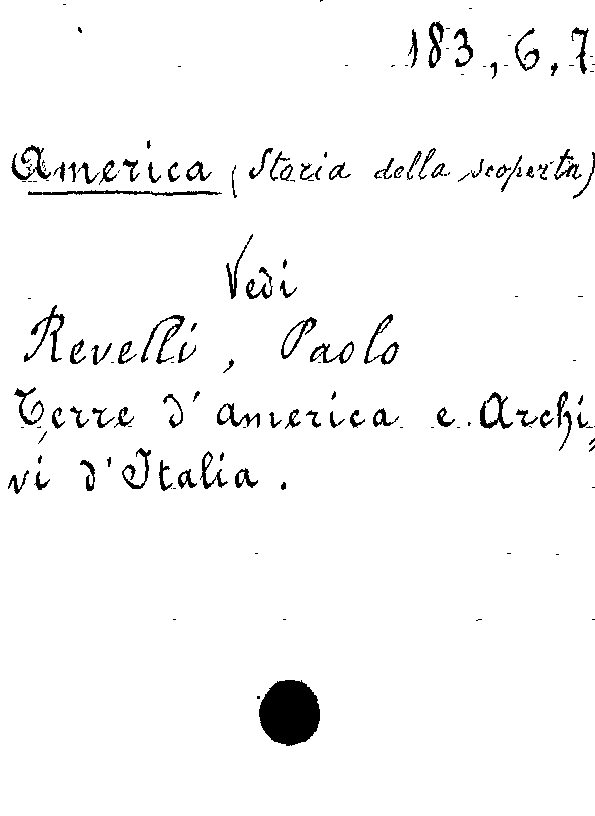 183, 6, 7
America (Storia della scoperta)
Vedi
Revelli, Paolo
Terre d'america e Archi=
vi d'Italia.